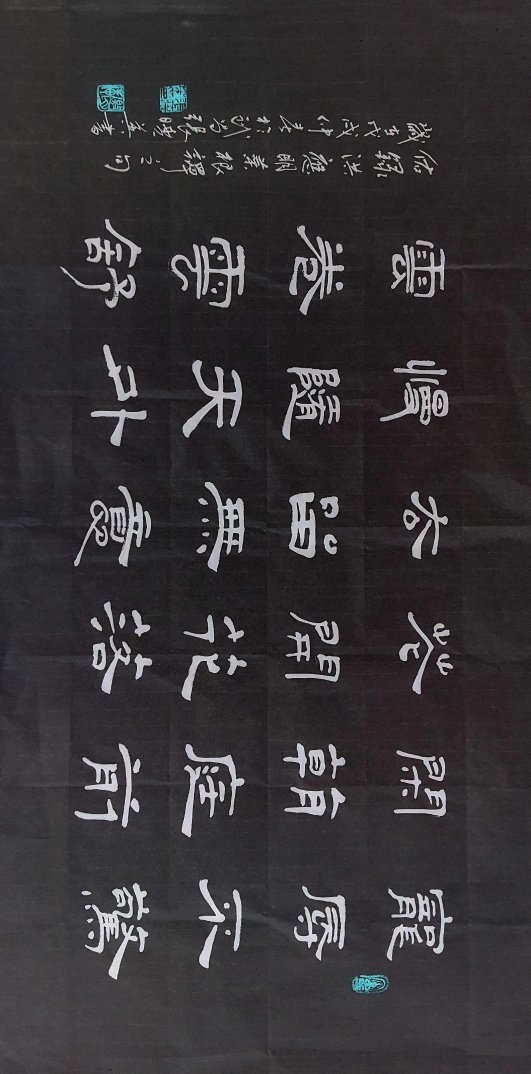 寵辱不驚
閒看庭前
花開花落
去留無意
慢隨天外
雲卷雲舒
錄洪應明菜根譚之句
歲在戊戌仲春於
書